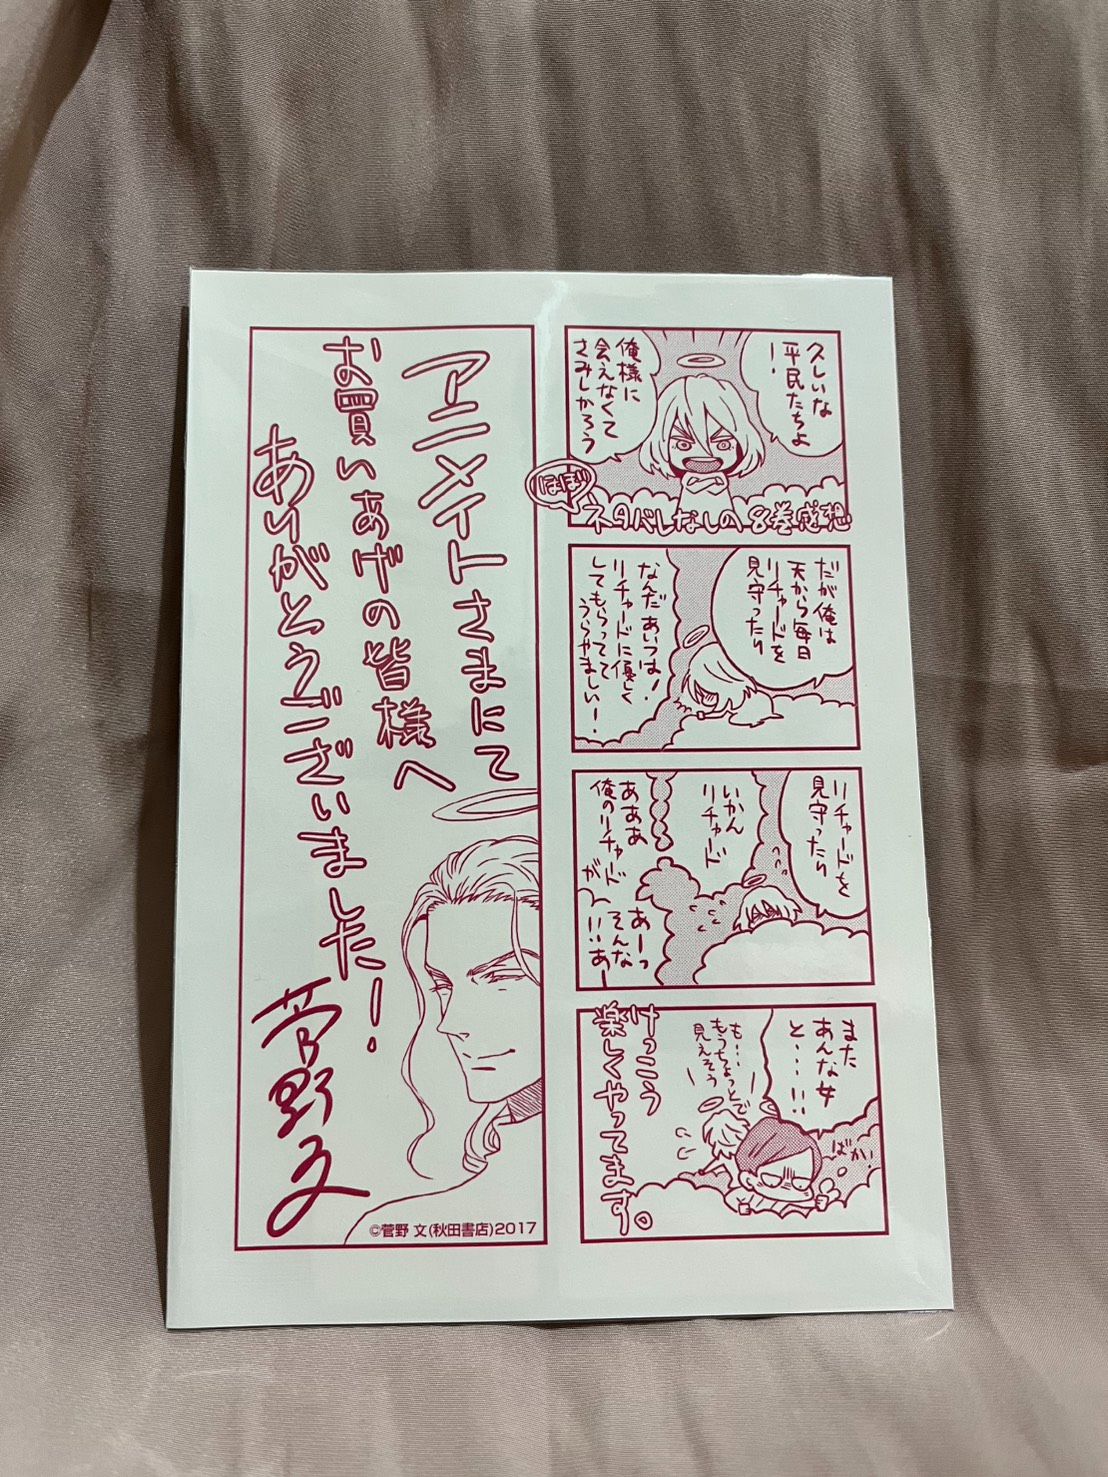 久しいな
平民たちよ
！
俺様に
会えなくて
さみしかろう
ほぼ
ネタバレなしの8巻感想
だが俺は
天から毎日
リチャードを
見守ったり
なんだあいつは！
リチャードに優しく
してもらってて
うらやましい！
リチャードを
見守ったり
いかん
リチャード
あああ
俺のリチャードが
あーっ
そんな
!!あー
また
あんな女
と…!!
ばかっ
も…
もうちょっとで
見えそう
けっこう
楽しくやってます。
アニメイトさまにて
お買いあげの皆様へ
ありがとうございました！
菅野文
©菅野 文(秋田書店)2017